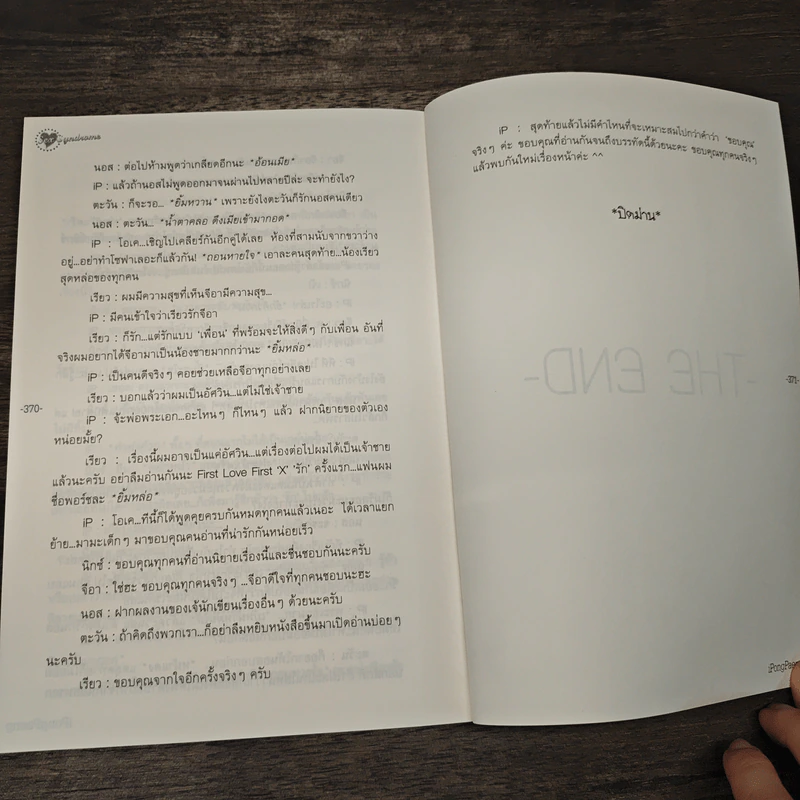 Syndrome
นอส : ต่อไปห้ามพูดว่าเกลียดอีกนะ *อ้อนเมีย*
iP : แล้วถ้านอสไม่พูดออกมาจนผ่านไปหลายปีล่ะ จะทำยังไง?
ตะวัน : ก็จะรอ... *ยิ้มหวาน* เพราะยังไงตะวันก็รักนอสคนเดียว
นอส : ตะวัน... *น้ำตาคลอ ดึงเมียเข้ามากอด*
iP : โอเค...เชิญไปเคลียร์กันอีกคู่ได้เลย ห้องที่สามนับจากขวาว่าง
อยู่...อย่าทำโซฟาเลอะก็แล้วกัน! *ถอนหายใจ* เอาละคนสุดท้าย...น้องเรียว
สุดหล่อของทุกคน
เรียว : ผมมีความสุขที่เห็นจีอามีความสุข...
iP : มีคนเข้าใจว่าเรียวรักจีอา
เรียว : ก็รัก...แต่รักแบบ 'เพื่อน' ที่พร้อมจะให้สิ่งดีๆ กับเพื่อน อันที่
จริงผมอยากได้จีอามาเป็นน้องชายมากกว่านะ *ยิ้มหล่อ*
iP : เป็นคนดีจริงๆ คอยช่วยเหลือจีอาทุกอย่างเลย
เรียว : บอกแล้วว่าผมเป็นอัศวิน...แต่ไม่ใช่เจ้าชาย
-370-
iP : จ้ะพ่อพระเอก...อะไหนๆ ก็ไหนๆ แล้ว ฝากนิยายของตัวเอง
หน่อยมั้ย?
เรียว : เรื่องนี้ผมอาจเป็นแค่อัศวิน...แต่เรื่องต่อไปผมได้เป็นเจ้าชาย
แล้วนะครับ อย่าลืมอ่านกันนะ First Love First 'X' 'รัก' ครั้งแรก...แฟนผม
ชื่อพอร์ชละ *ยิ้มหล่อ*
iP : โอเค...ทีนี้ก็ได้พูดคุยครบกันหมดทุกคนแล้วเนอะ ได้เวลาแยก
ย้าย...มามะเด็กๆ มาขอบคุณคนอ่านที่น่ารักกันหน่อยเร็ว
นิกซ์ : ขอบคุณทุกคนที่อ่านนิยายเรื่องนี้และชื่นชอบกันนะครับ
จีอา : ใช่ฮะ ขอบคุณทุกคนจริงๆ ...จีอาดีใจที่ทุกคนชอบนะฮะ
นอส : ฝากผลงานของเจ้นักเขียนเรื่องอื่นๆ ด้วยนะครับ
ตะวัน : ถ้าคิดถึงพวกเรา...ก็อย่าลืมหยิบหนังสือขึ้นมาเปิดอ่านบ่อยๆ
นะครับ
เรียว : ขอบคุณจากใจอีกครั้งจริงๆ ครับ
iP : สุดท้ายแล้วไม่มีคำไหนที่จะเหมาะสมไปกว่าคำว่า 'ขอบคุณ'
จริงๆ ค่ะ ขอบคุณที่อ่านกันจนถึงบรรทัดนี้ด้วยนะคะ ขอบคุณทุกคนจริงๆ
แล้วพบกันใหม่เรื่องหน้าค่ะ ^^
*ปิดม่าน*
-THE END-
-371-